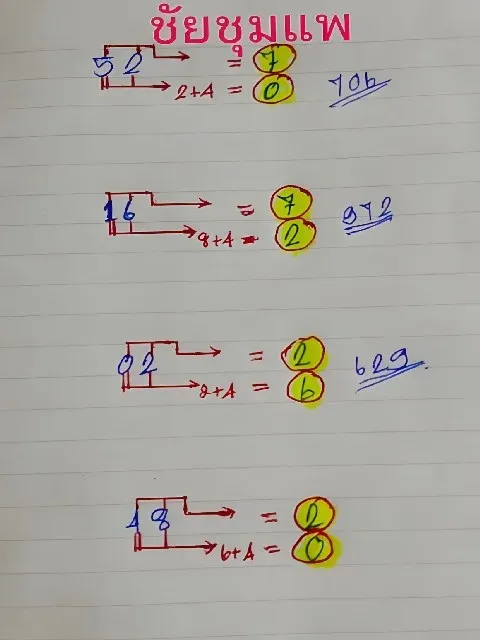 ชัยชุมแพ
52 = 7
2+4 = 0 706
16 = 7
8+4 = 2 972
02 = 2
2+4 = 6 629
48 = 2
6+4 = 0